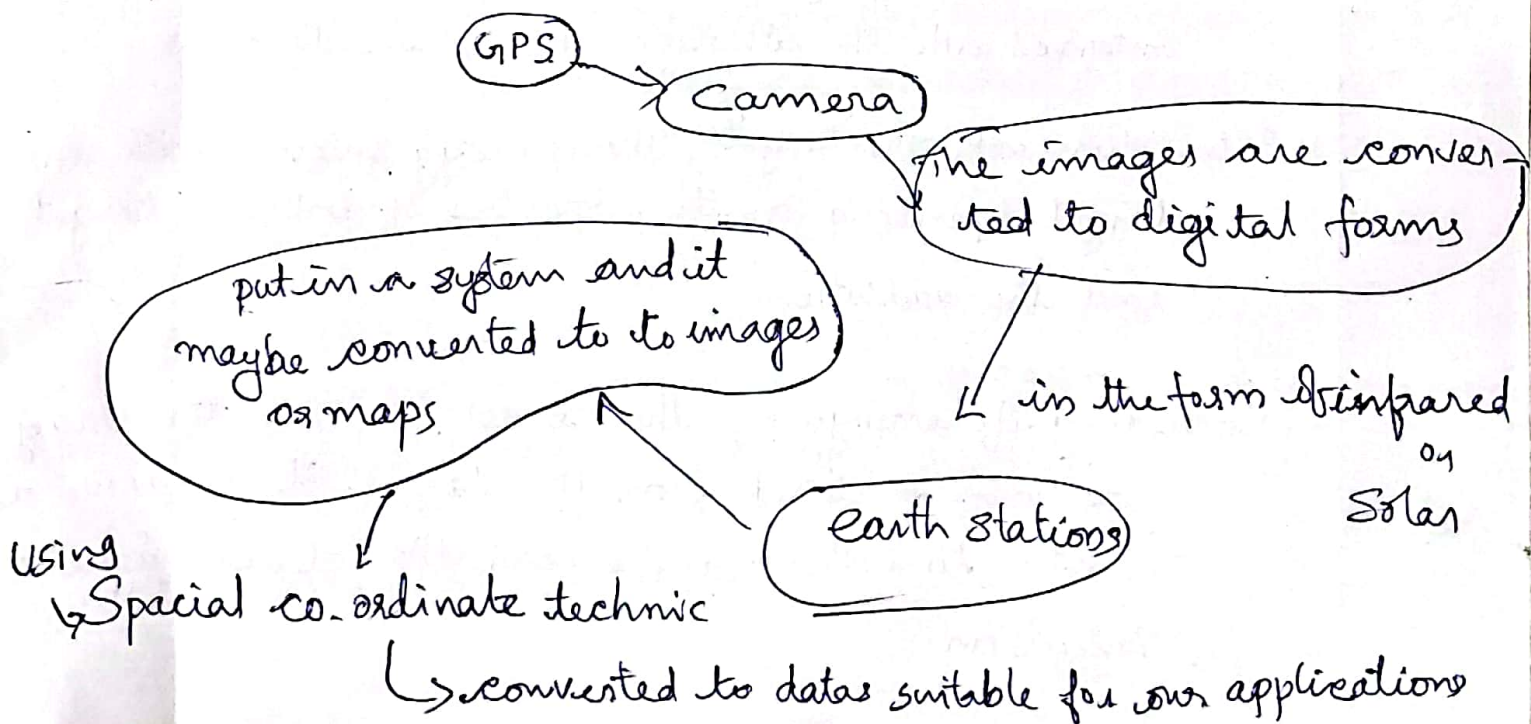 GPS
Camera
The images are conver-
ted to digital forms
in the form of infrared
or
Solar
earth stations
put in a system and it
maybe converted to to images
or maps
using
Spacial co-ordinate technic
converted to datas suitable for our applications